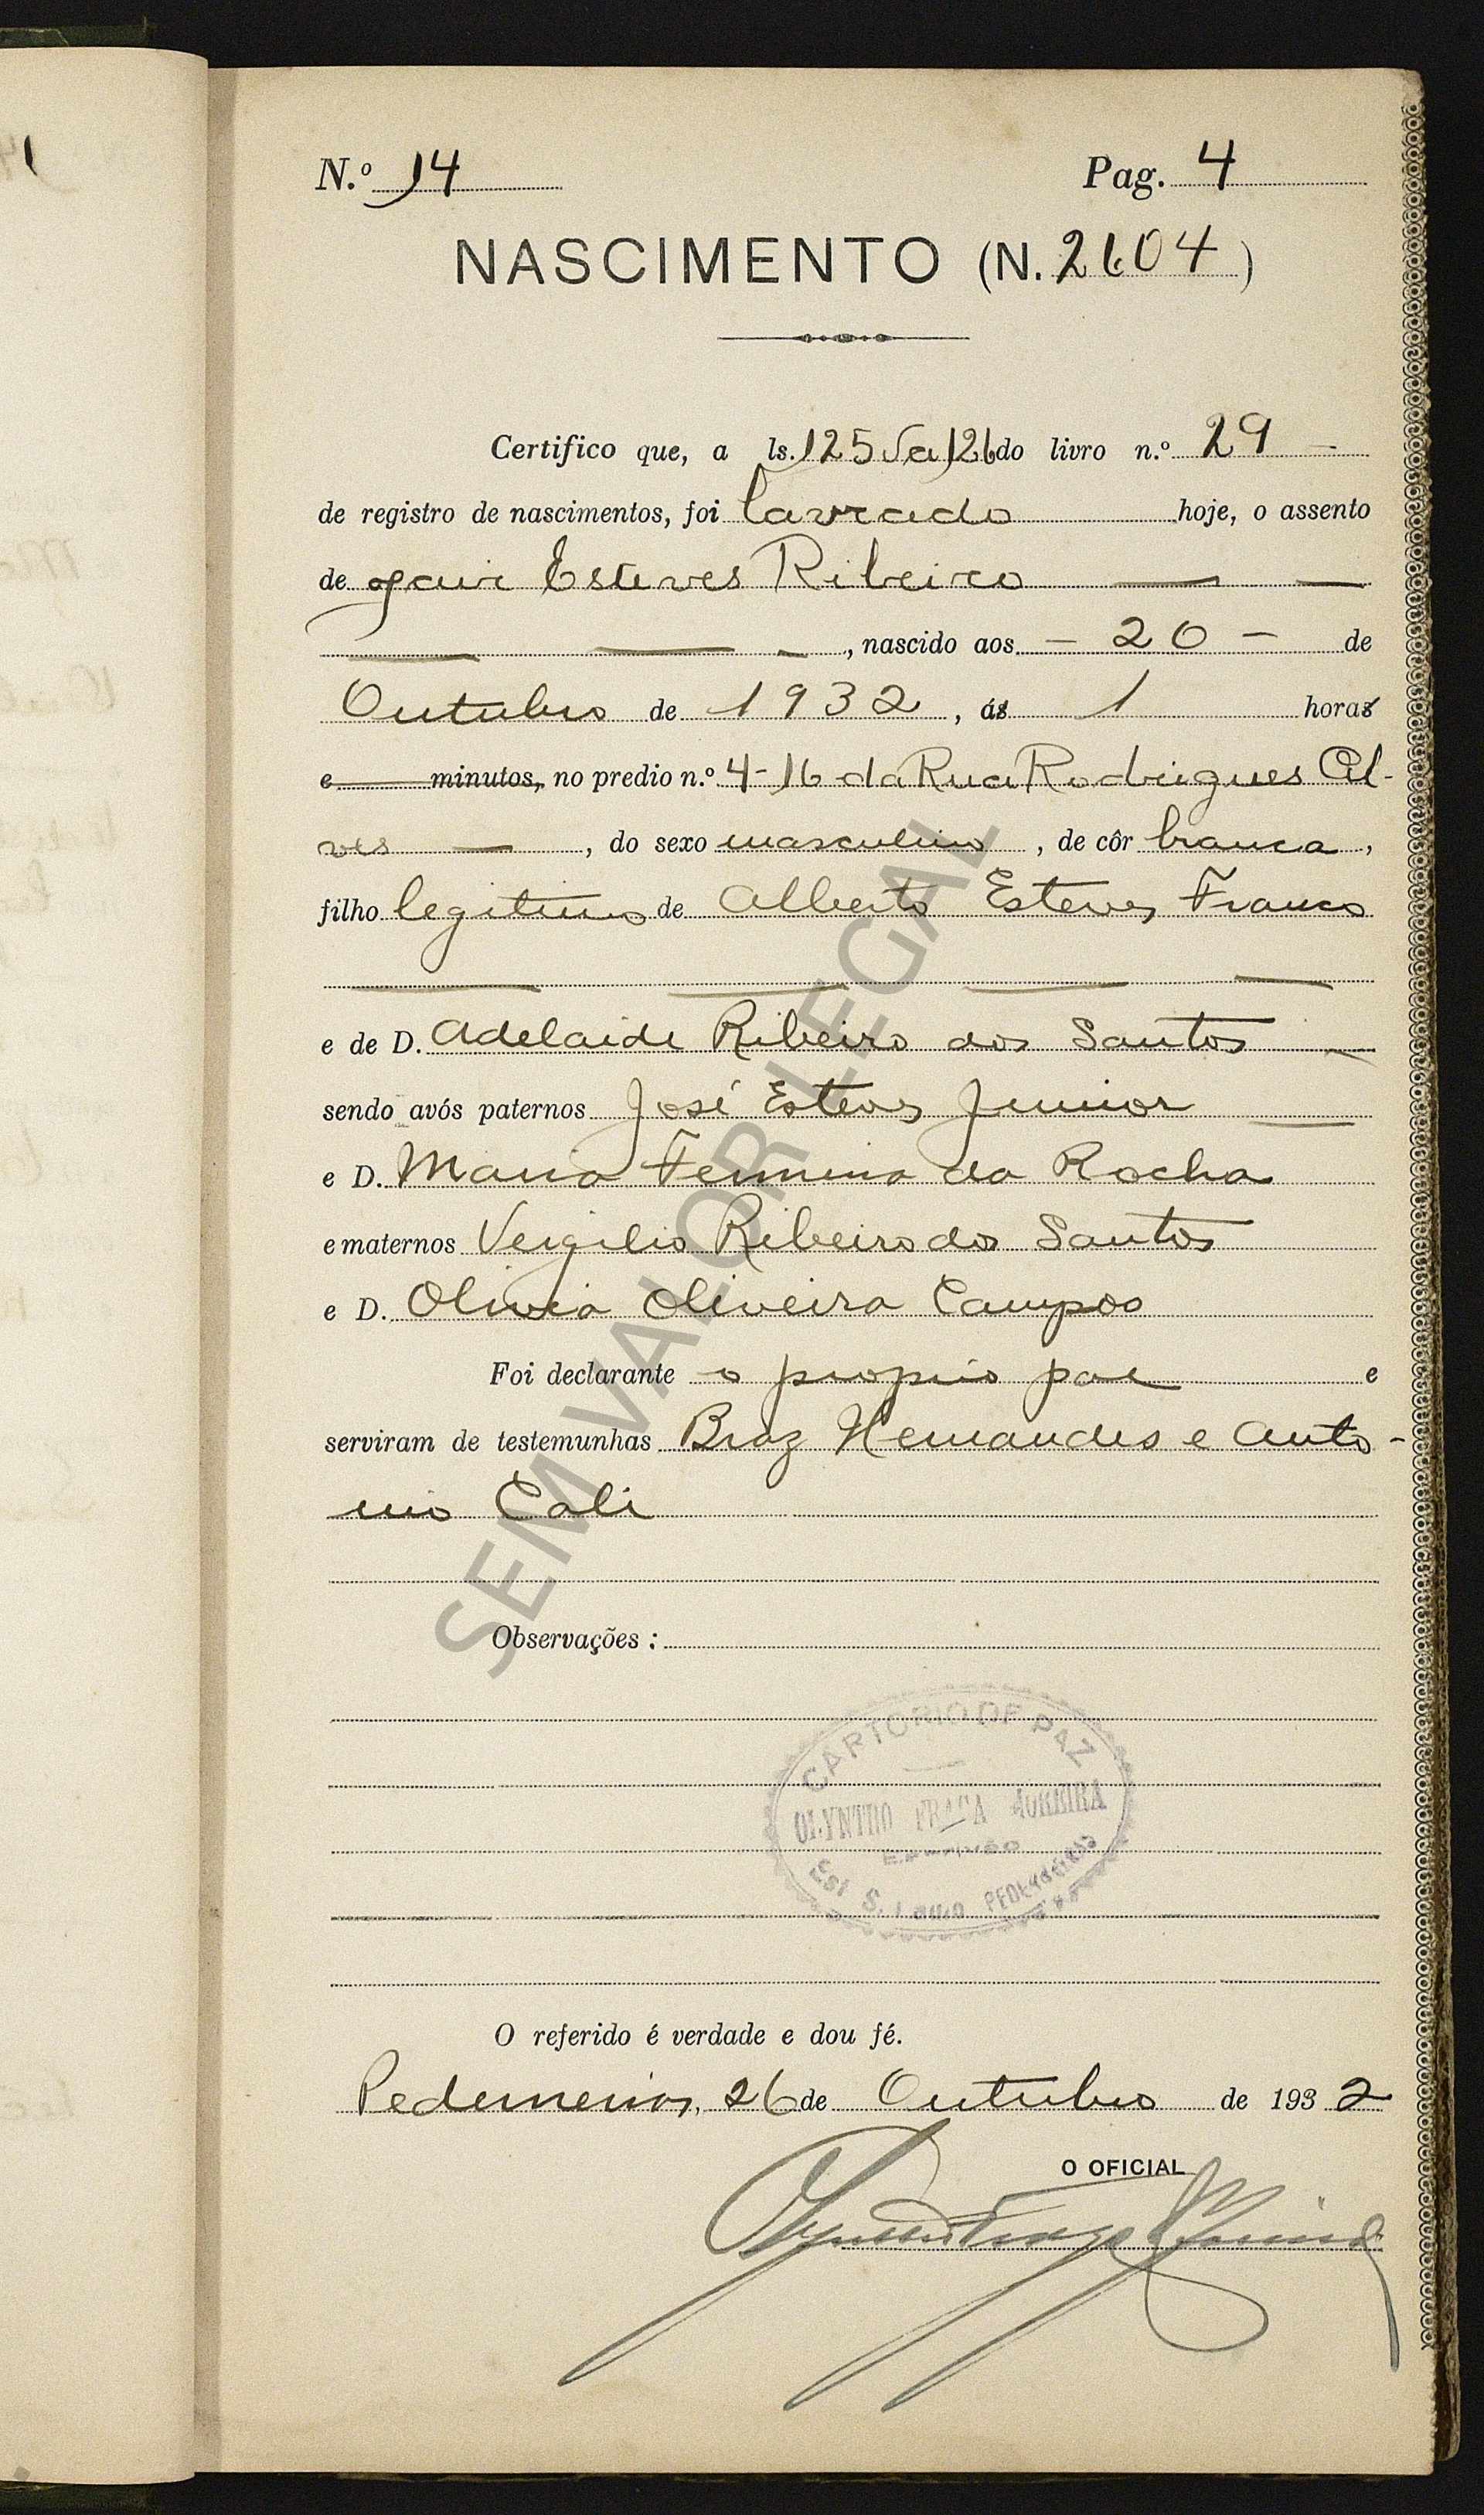 N.º 14 Pag. 4
NASCIMENTO (N. 2604)
Certifico que, a ls. 125 Va 126 do livro n.º 29 —
de registro de nascimentos, foi lavrado hoje, o assento
de Jair Esteves Ribeiro — —
— — —, nascido aos — 20 — de
Outubro de 1932, ás 1 horas
e — minutos, no predio n.º 4-16 da Rua Rodrigues Al-
ves —, do sexo masculino, de côr branca,
filho legitimo de Alberto Esteves Franco
— — — —
e de D. Adelaide Ribeiro dos Santos —
sendo avós paternos José Esteves Junior —
e D. Maria Firmina da Rocha
e maternos Vergilio Ribeiro dos Santos
e D. Olivia Oliveira Campos
Foi declarante o proprio pae e
serviram de testemunhas Braz Hernandes e Anto-
nio Cali
Observações :
CARTORIO DE PAZ
OLYNTHO FRAGA MOREIRA
ESCRIVÃO
EST S. PAULO PEDERNEIRAS
O referido é verdade e dou fé.
Pederneiras, 26 de Outubro de 1932
O OFICIAL
SEM VALOR LEGAL